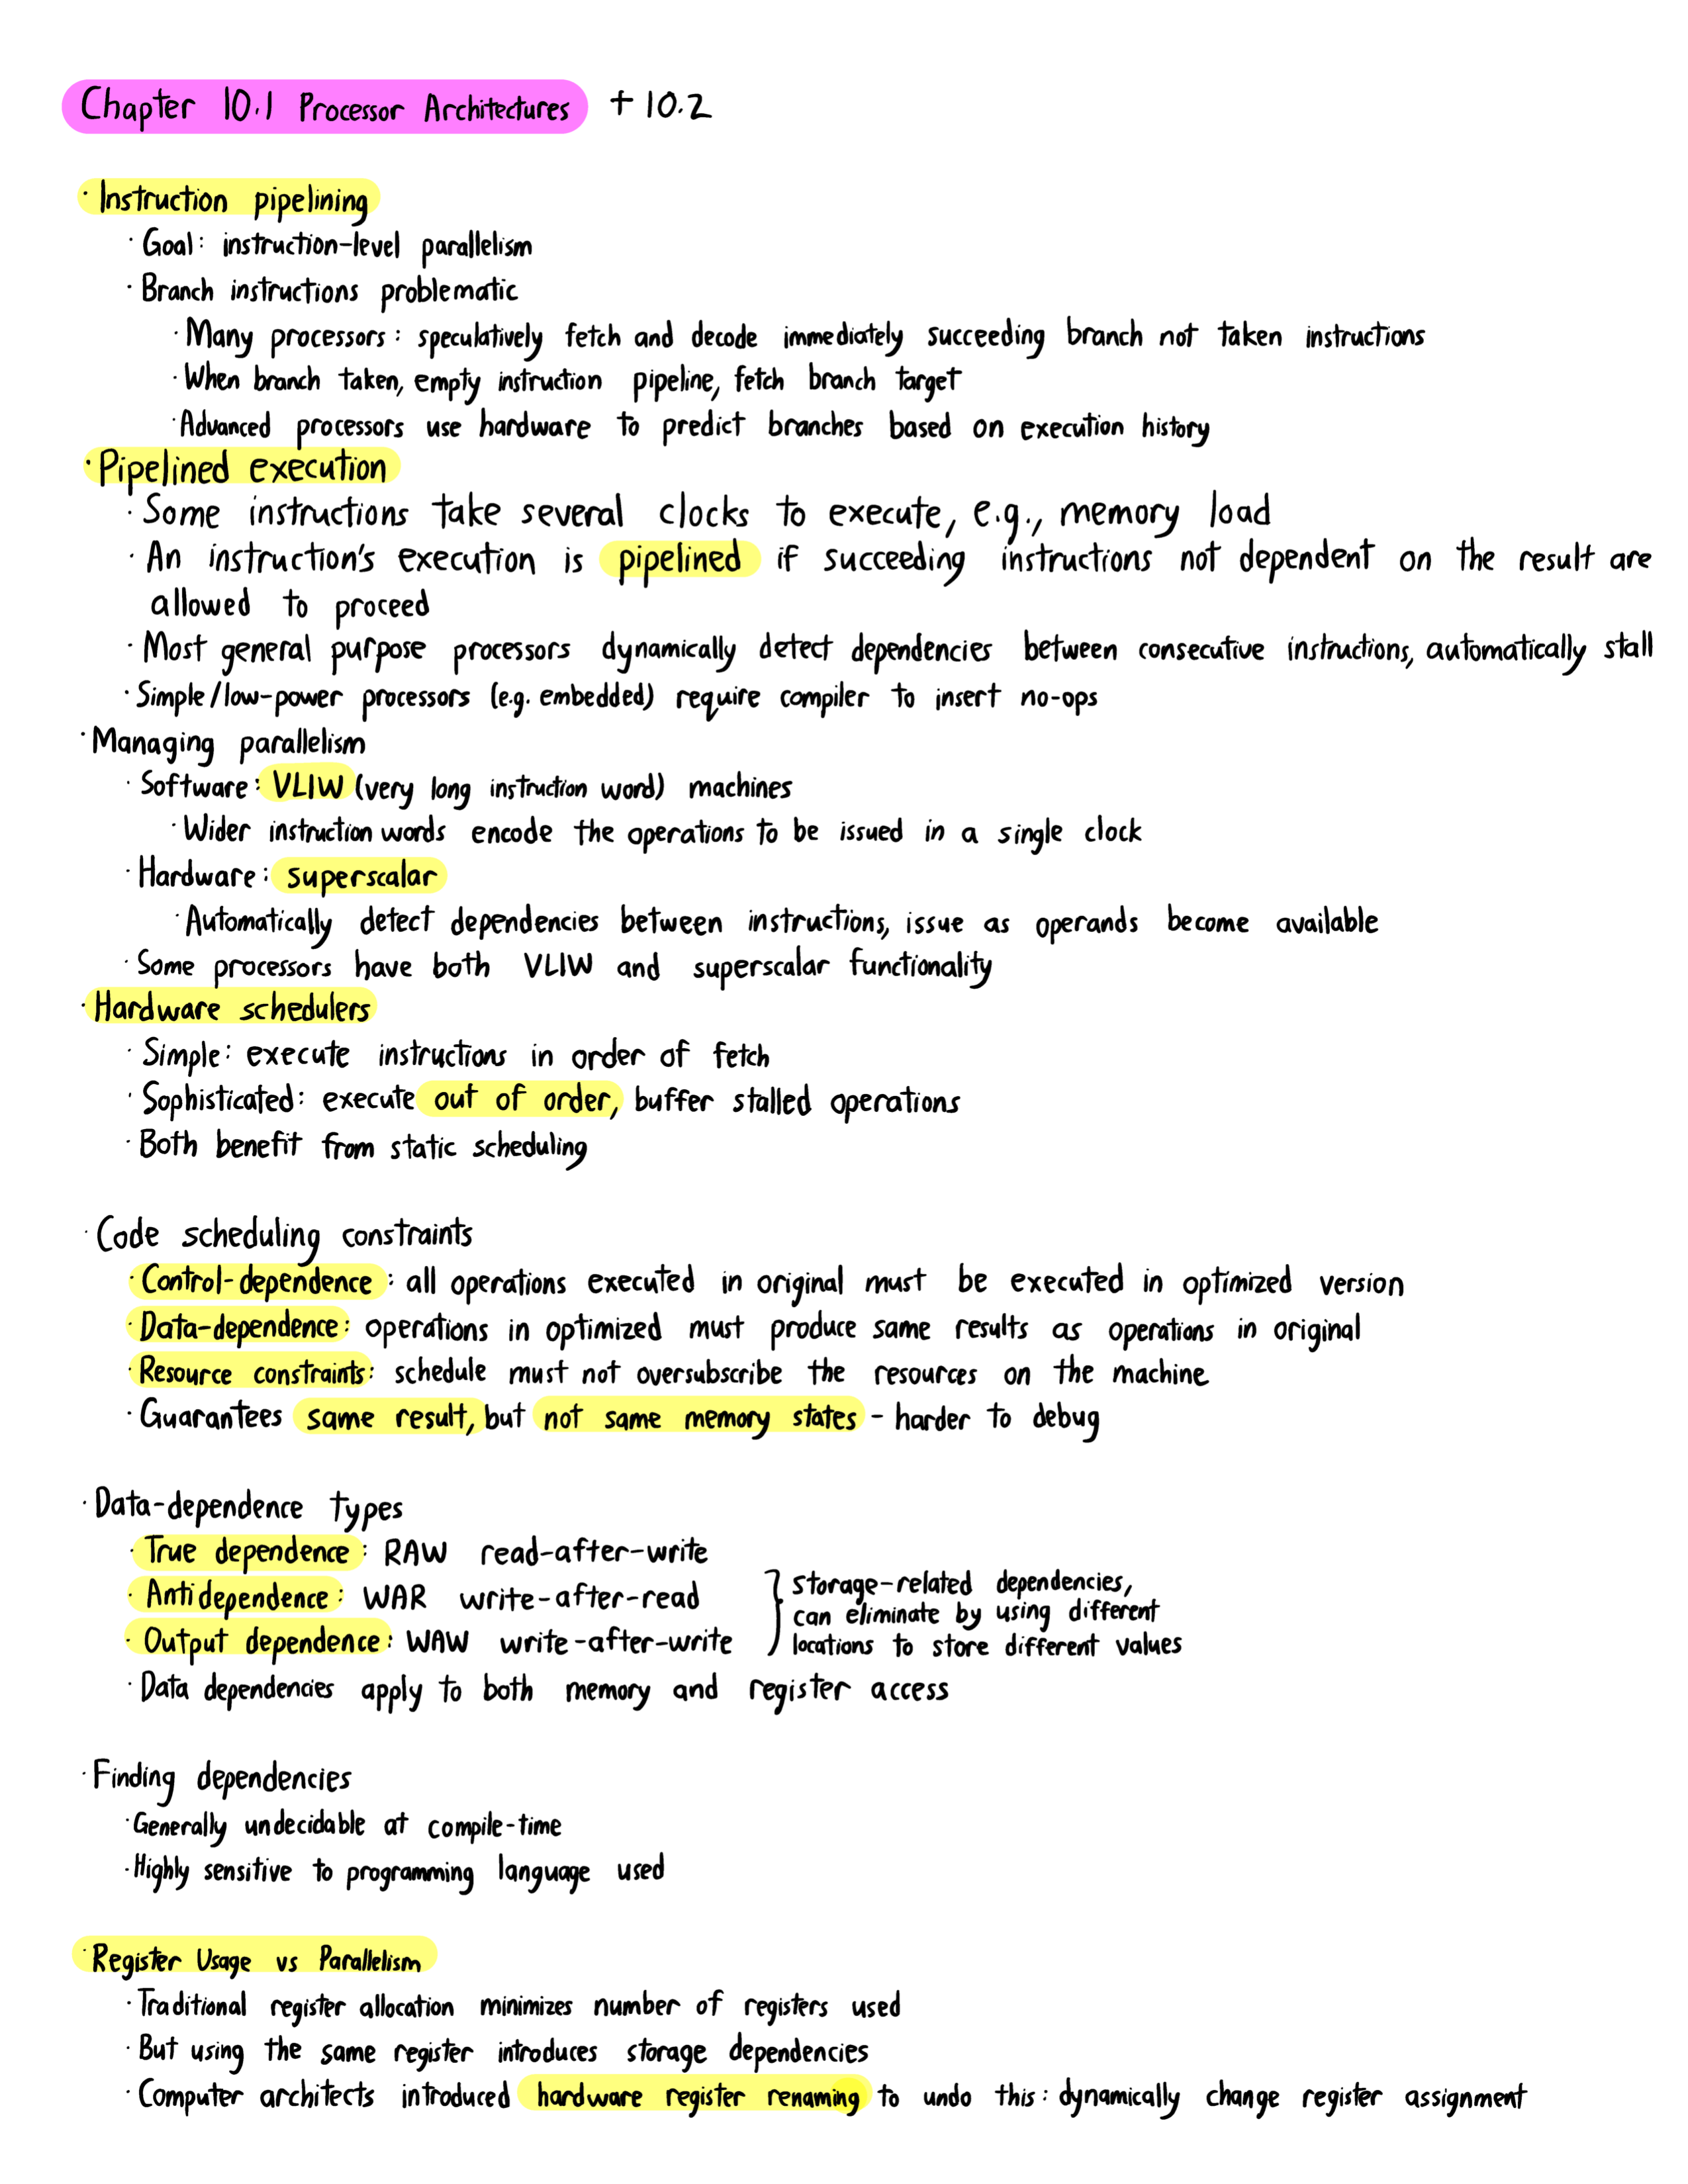 Chapter 10.1 Processor Architectures + 10.2
· Instruction pipelining
· Goal: instruction-level parallelism
· Branch instructions problematic
· Many processors: speculatively fetch and decode immediately succeeding branch not taken instructions
· When branch taken, empty instruction pipeline, fetch branch target
· Advanced processors use hardware to predict branches based on execution history
· Pipelined execution
· Some instructions take several clocks to execute, e.g., memory load
· An instruction's execution is pipelined if succeeding instructions not dependent on the result are
allowed to proceed
· Most general purpose processors dynamically detect dependencies between consecutive instructions, automatically stall
· Simple/low-power processors (e.g. embedded) require compiler to insert no-ops
· Managing parallelism
· Software: VLIW (very long instruction word) machines
· Wider instruction words encode the operations to be issued in a single clock
· Hardware: superscalar
· Automatically detect dependencies between instructions, issue as operands become available
· Some processors have both VLIW and superscalar functionality
· Hardware schedulers
· Simple: execute instructions in order of fetch
· Sophisticated: execute out of order, buffer stalled operations
· Both benefit from static scheduling
· Code scheduling constraints
· Control-dependence: all operations executed in original must be executed in optimized version
· Data-dependence: operations in optimized must produce same results as operations in original
· Resource constraints: schedule must not oversubscribe the resources on the machine
· Guarantees same result, but not same memory states - harder to debug
· Data-dependence types
· True dependence: RAW read-after-write
· Antidependence: WAR write-after-read
· Output dependence: WAW write-after-write
} storage-related dependencies,
can eliminate by using different
locations to store different values
· Data dependencies apply to both memory and register access
· Finding dependencies
· Generally undecidable at compile-time
· Highly sensitive to programming language used
· Register Usage vs Parallelism
· Traditional register allocation minimizes number of registers used
· But using the same register introduces storage dependencies
· Computer architects introduced hardware register renaming to undo this: dynamically change register assignment